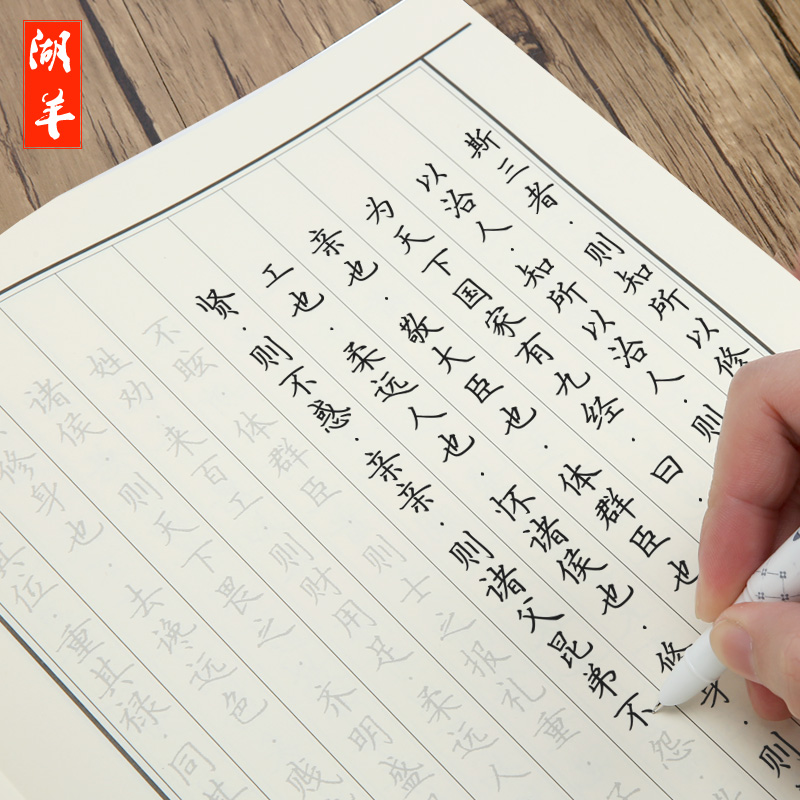 湖羊
斯三者.则知所以修
以治人.知所以治人.则
为天下国家有九经.曰
亲也.敬大臣也.体群臣也
工也.柔远人也.怀诸侯也 修身 则
贤.则不惑.亲亲.则诸父昆弟不怨
不眩.体群臣.则士之报礼重 子
姓劝.来百工.则财用足.柔远人
诸侯.则天下畏之.齐明盛
修身也.去谗远色.贱
其位.重其禄.同其